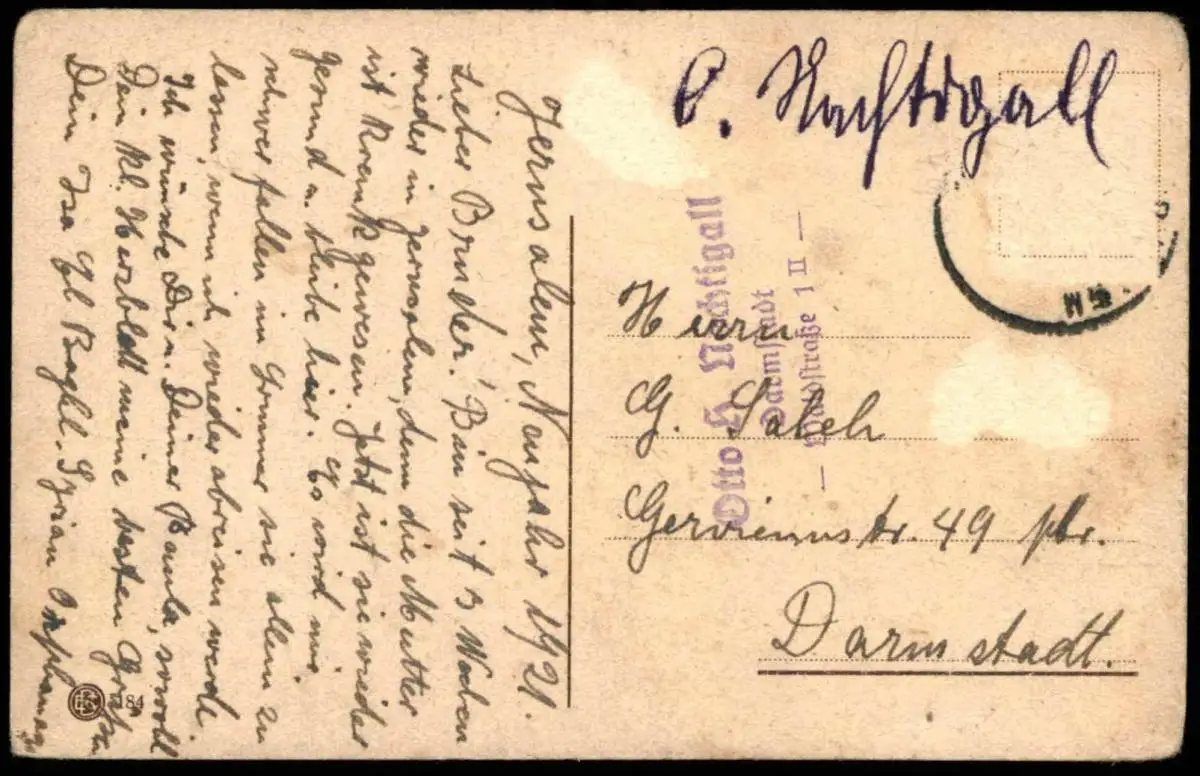 Jerusalem, Neujahr 1921.
Lieber Bruder! Bin seit 3 Wochen
wieder in Jerusalem, denn die Mutter
ist krank gewesen. Jetzt ist sie wieder
gesund u. bleibe hier. Es wird mir
schwer fallen im Sommer sie allein zu
lassen, wenn ich wieder abreisen werde.
Ich wünsche Dir u. Deiner Paula, sowohl
Dein kl. Herzblatt meine besten Grüße
Dein Isa
Syrian Orphanage
O. Nachtigall
Otto H. Nachtigall
Darmstadt
— Waldstraße 1 II —
Herrn
G. Saleh
Gervinusstr. 49 ptr.
Darmstadt.
184